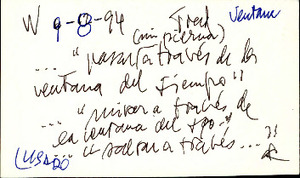 W 9-8-94 Fred ventana
(sin pierna)
... "pasar a través de la
ventana del tiempo"
... "mirar a través de
la ventana del tpo."
(USADO) "saltar a través ...?!